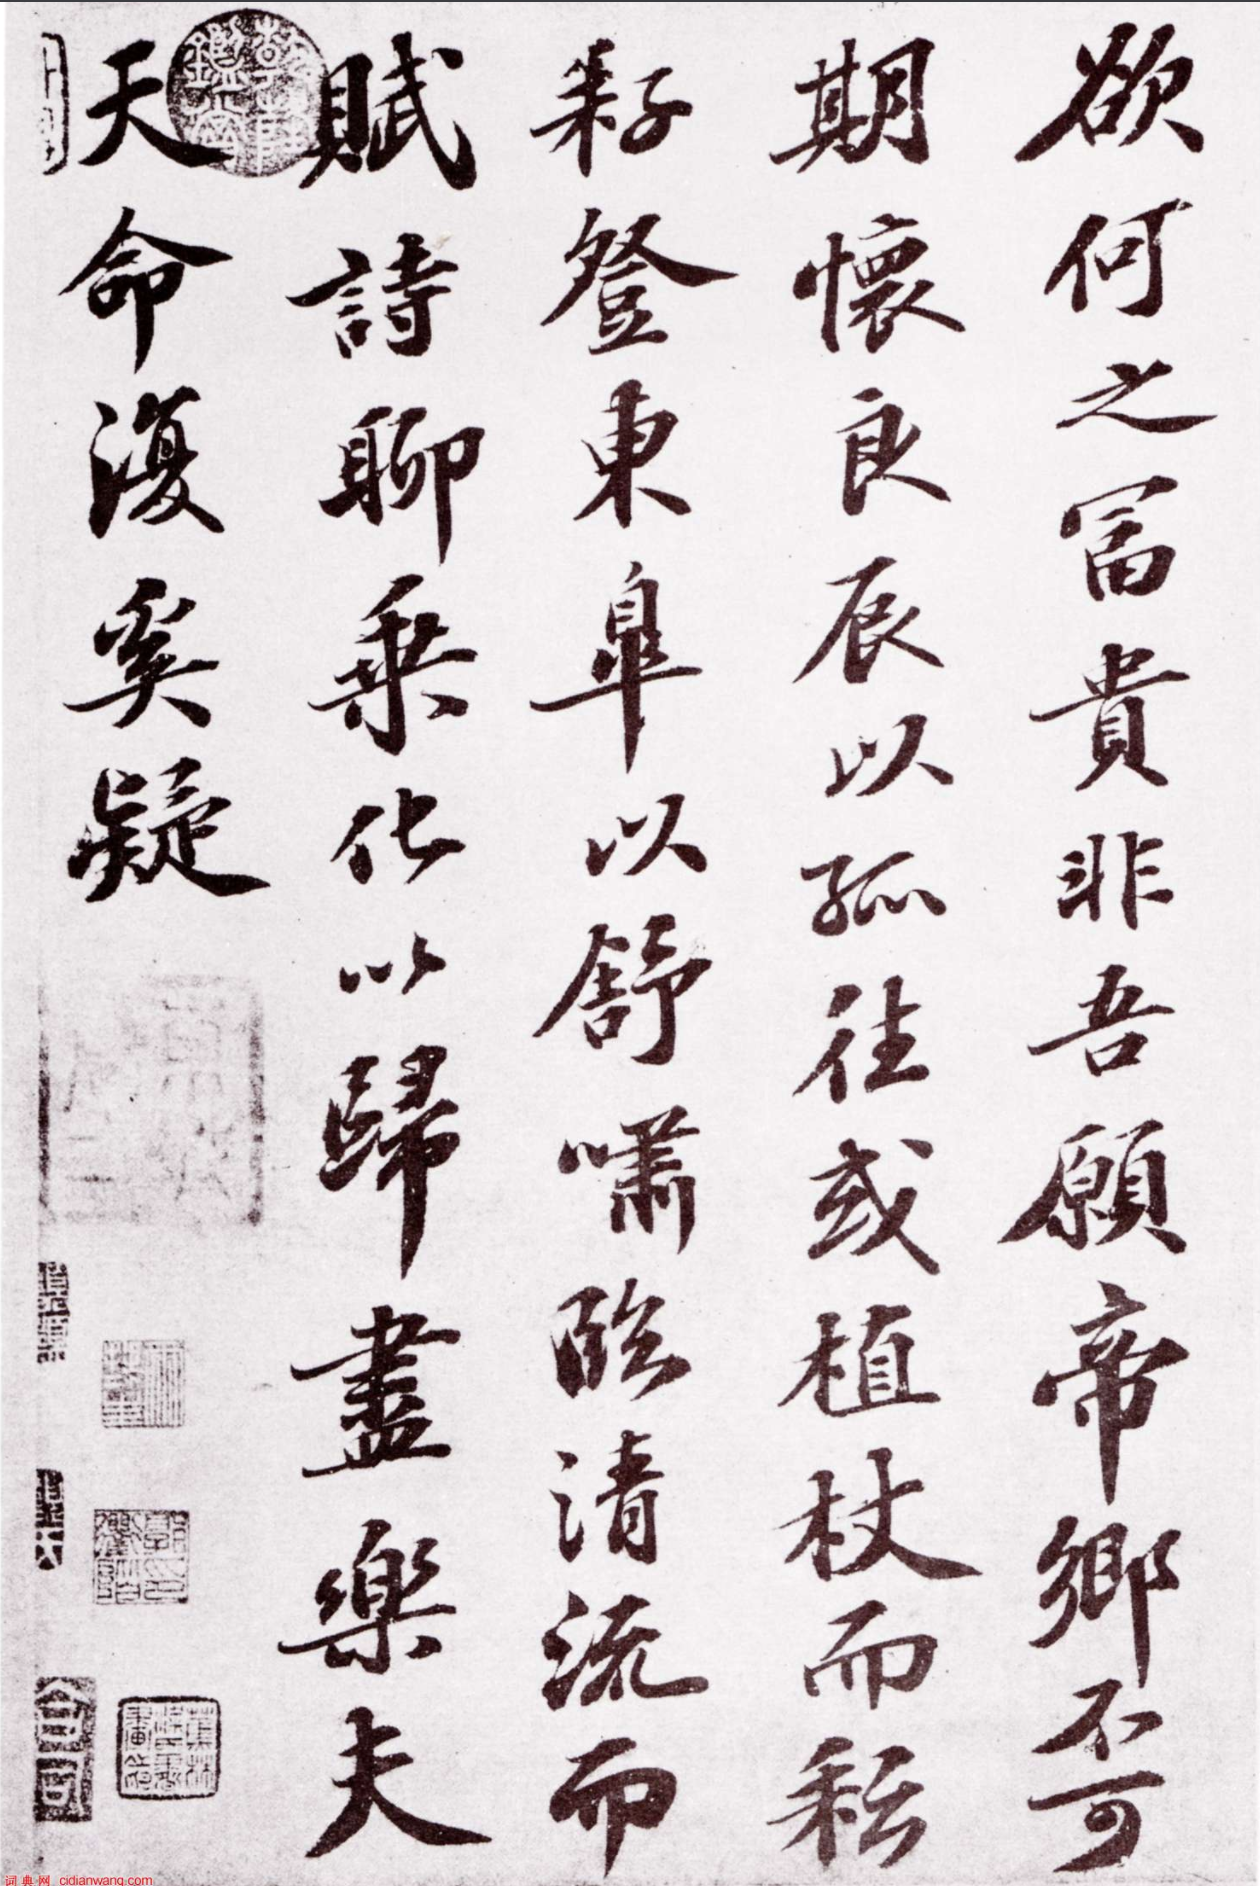 欲何之富貴非吾願帝鄉不可
期懷良辰以孤往或植杖而耘
耔登東皐以舒嘯臨清流而
賦詩聊乗化以歸盡樂夫
天命復奚疑
蕉林梁氏書畫之印
词典网 cidianwang.com